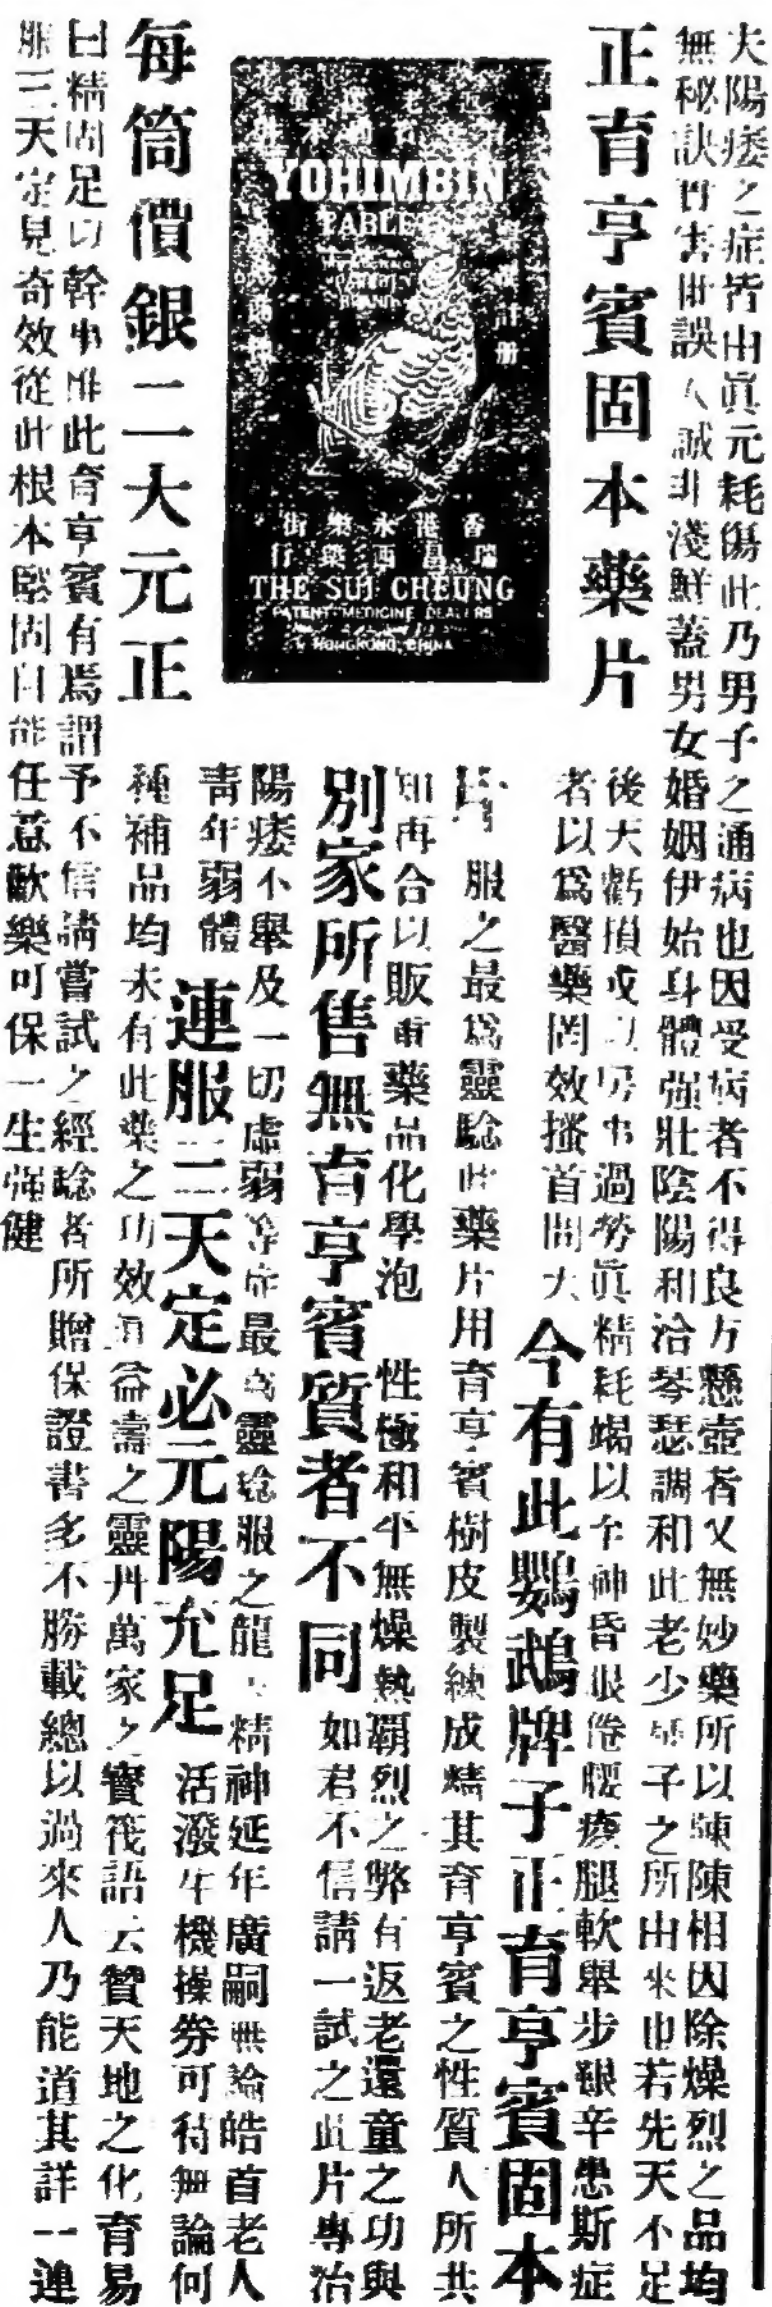 夫陽痿之症皆由眞元耗傷此乃男子之通病也因受病者不得良方懸壺者又無妙藥所以陳陳相因除燥烈之品均
無秘訣害世誤人誠非淺鮮蓋男女婚姻伊始身體强壯陰陽和洽琴瑟調和此老少男子之所由來也若先天不足
正育亨賓固本藥片
後天虧損或以房事過勞眞精耗竭以至神昏眼倦腰痠腿軟舉步艱辛患斯症
者以爲醫藥罔效搔首問天 今有此鸚鵡牌子正育亨賓固本
片 服之最爲靈驗此藥片用育亨賓樹皮製練成精其育亨賓之性質人所共
知再合以販重藥品化學泡 性極和平無燥熱覇烈之弊有返老還童之功與
別家所售無育亨賓質者不同 如君不信請一試之此片專治
陽痿不舉及一切虛弱等症最爲靈驗服之龍精神延年廣嗣無論皓首老人
青年弱體 連服三天定必元陽充足 活潑生機操券可待無論何
種補品均未有此藥之功效益壽之靈丹萬家之寶筏語云贊天地之化育易
YOHIMBIN
TABLETS
香港永樂街
瑞昌西藥行
THE SUI CHEUNG
PATENT MEDICINE DEALERS
HONGKONG, CHINA
每筒價銀二大元正
曰精固足以幹事惟此育亨賓有焉謂予不信請嘗試之經驗者所贈保證書多不勝載總以過來人乃能道其詳一連
服三天定見奇效從此根本堅固自能任意歡樂可保一生強健